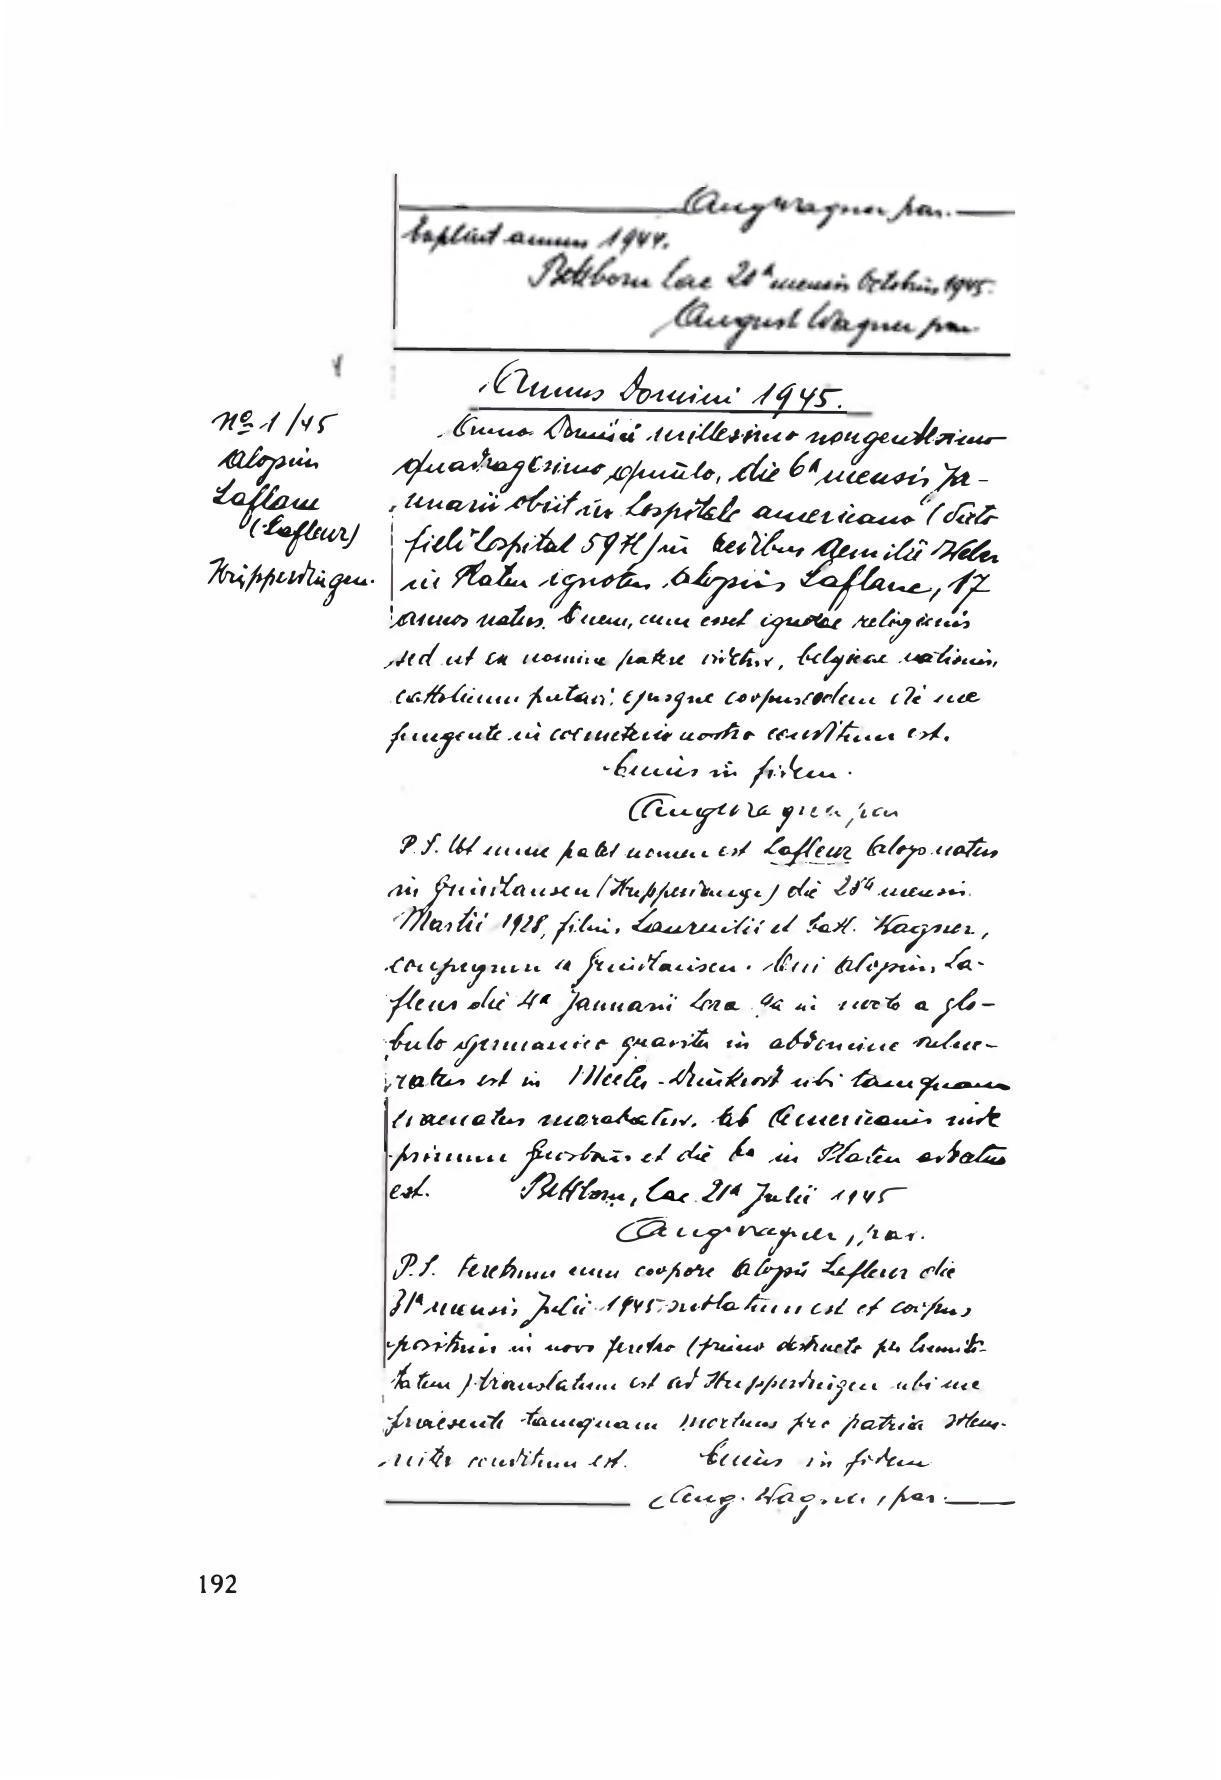 Aug Wagner par.
Explicit annus 1944.
Bettborn hac 20ᵃ mensis Octobris 1945.
August Wagner par.
Annus Domini 1945.
Nº 1/45
Aloysius
Laflane
(Lafleur)
Hüpperdingen.
Anno Domini millesimo nongentesimo
quadragesimo quinto, die 6ᵃ mensis Ja-
nuarii obiit in hospitale americano (dicto
field hospital 59 H) in aedibus Aemilii Weber
in Platen ignotus Aloysius Laflane, 17
annos natus. Quem, cum esset ignotae religionis
sed ut ex nomine patere videtur, belgicae nationis,
catholicum putavi, ejusque corpus eodem die me
fungente in coemeterio nostro conditum est.
Cuius in fidem.
Aug Wagner, par
P.S. Ut nunc patet nomen est Lafleur Aloys natus
in (Hupperdange) die 28ᵃ mensis
Martii 1928, filius Laurentii et Cath. Wagner,
conjugum. Qui Aloysius La-
fleur die 4ᵃ Januarii hora 9a in nocte a glo-
bulo germanico graviter in abdomine vulne-
ratus est in ubi tamquam
evacuatus morabatur. Ab Americanis inde
primum et die in Platen
est. Bettborn, hac 21ᵃ Julii 1945
Aug Wagner, par.
P.S. Feretrum cum corpore Aloysii Lafleur die
31ᵃ mensis Julii 1945 sublatum est et corpus
positum in novo feretro (primo destructo per humidi-
tatem) translatum est ad Hupperdingen ubi me
praesente tamquam mortuus pro patria solem-
niter conditum est. Cuius in fidem
Aug. Wagner, par.
192